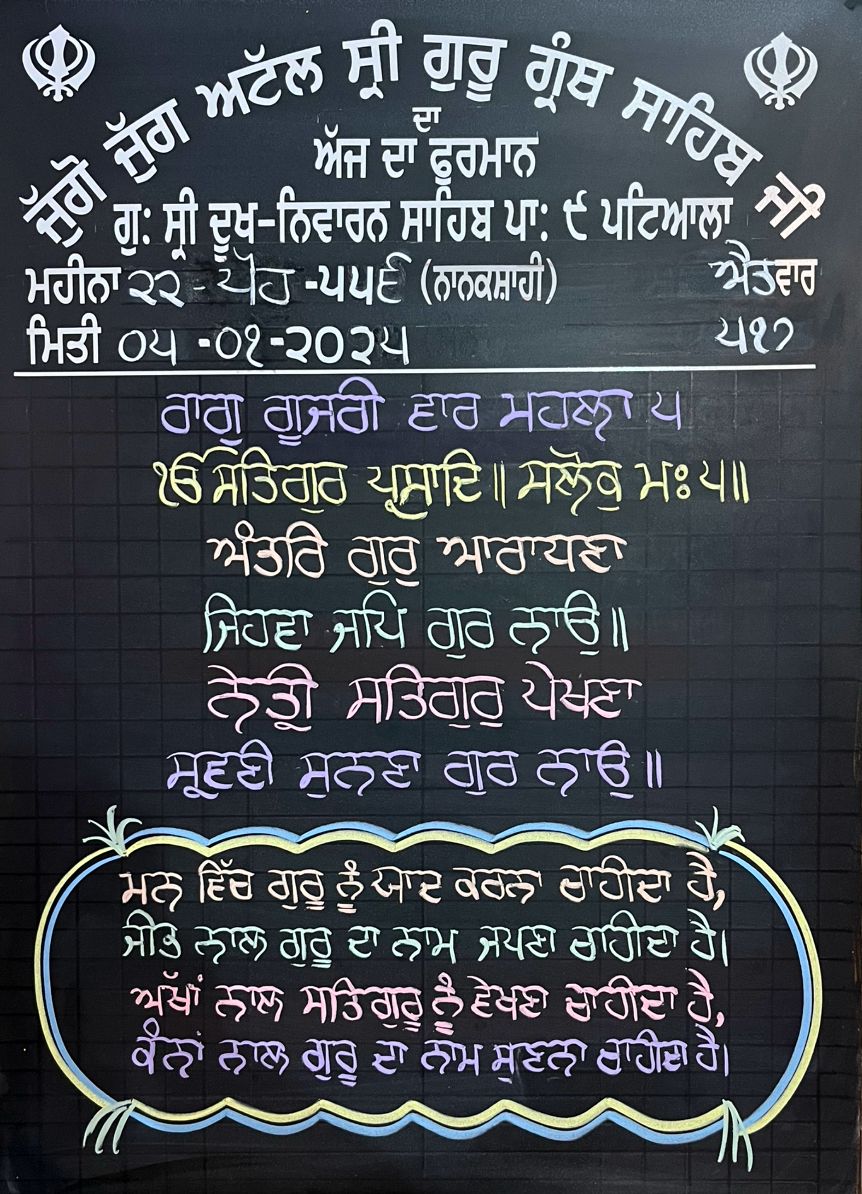 ਜੁੱਗੋ ਜੁੱਗ ਅਟੱਲ ਸ੍ਰੀ ਗੁਰੂ ਗ੍ਰੰਥ ਸਾਹਿਬ ਜੀ
ਦਾ
ਅੱਜ ਦਾ ਫੁਰਮਾਨ
ਗੁ: ਸ੍ਰੀ ਦੂਖ-ਨਿਵਾਰਨ ਸਾਹਿਬ ਪਾ: ੯ ਪਟਿਆਲਾ
ਮਹੀਨਾ ੨੨ - ਪੋਹ -੫੫੬ (ਨਾਨਕਸ਼ਾਹੀ) ਐਤਵਾਰ
ਮਿਤੀ ੦੫ -੦੧-੨੦੨੫ ੫੧੭
ਰਾਗੁ ਗੂਜਰੀ ਵਾਰ ਮਹਲਾ ੫
ੴ ਸਤਿਗੁਰ ਪ੍ਰਸਾਦਿ॥ ਸਲੋਕੁ ਮਃ ੫॥
ਅੰਤਰਿ ਗੁਰੁ ਆਰਾਧਣਾ
ਜਿਹਵਾ ਜਪਿ ਗੁਰ ਨਾਉ॥
ਨੇਤ੍ਰੀ ਸਤਿਗੁਰੁ ਪੇਖਣਾ
ਸ੍ਰਵਣੀ ਸੁਨਣਾ ਗੁਰ ਨਾਉ॥
ਮਨ ਵਿੱਚ ਗੁਰੂ ਨੂੰ ਯਾਦ ਕਰਨਾ ਚਾਹੀਦਾ ਹੈ,
ਜੀਭ ਨਾਲ ਗੁਰੂ ਦਾ ਨਾਮ ਜਪਣਾ ਚਾਹੀਦਾ ਹੈ।
ਅੱਖਾਂ ਨਾਲ ਸਤਿਗੁਰੂ ਨੂੰ ਵੇਖਣਾ ਚਾਹੀਦਾ ਹੈ,
ਕੰਨਾਂ ਨਾਲ ਗੁਰੂ ਦਾ ਨਾਮ ਸੁਣਨਾ ਚਾਹੀਦਾ ਹੈ।